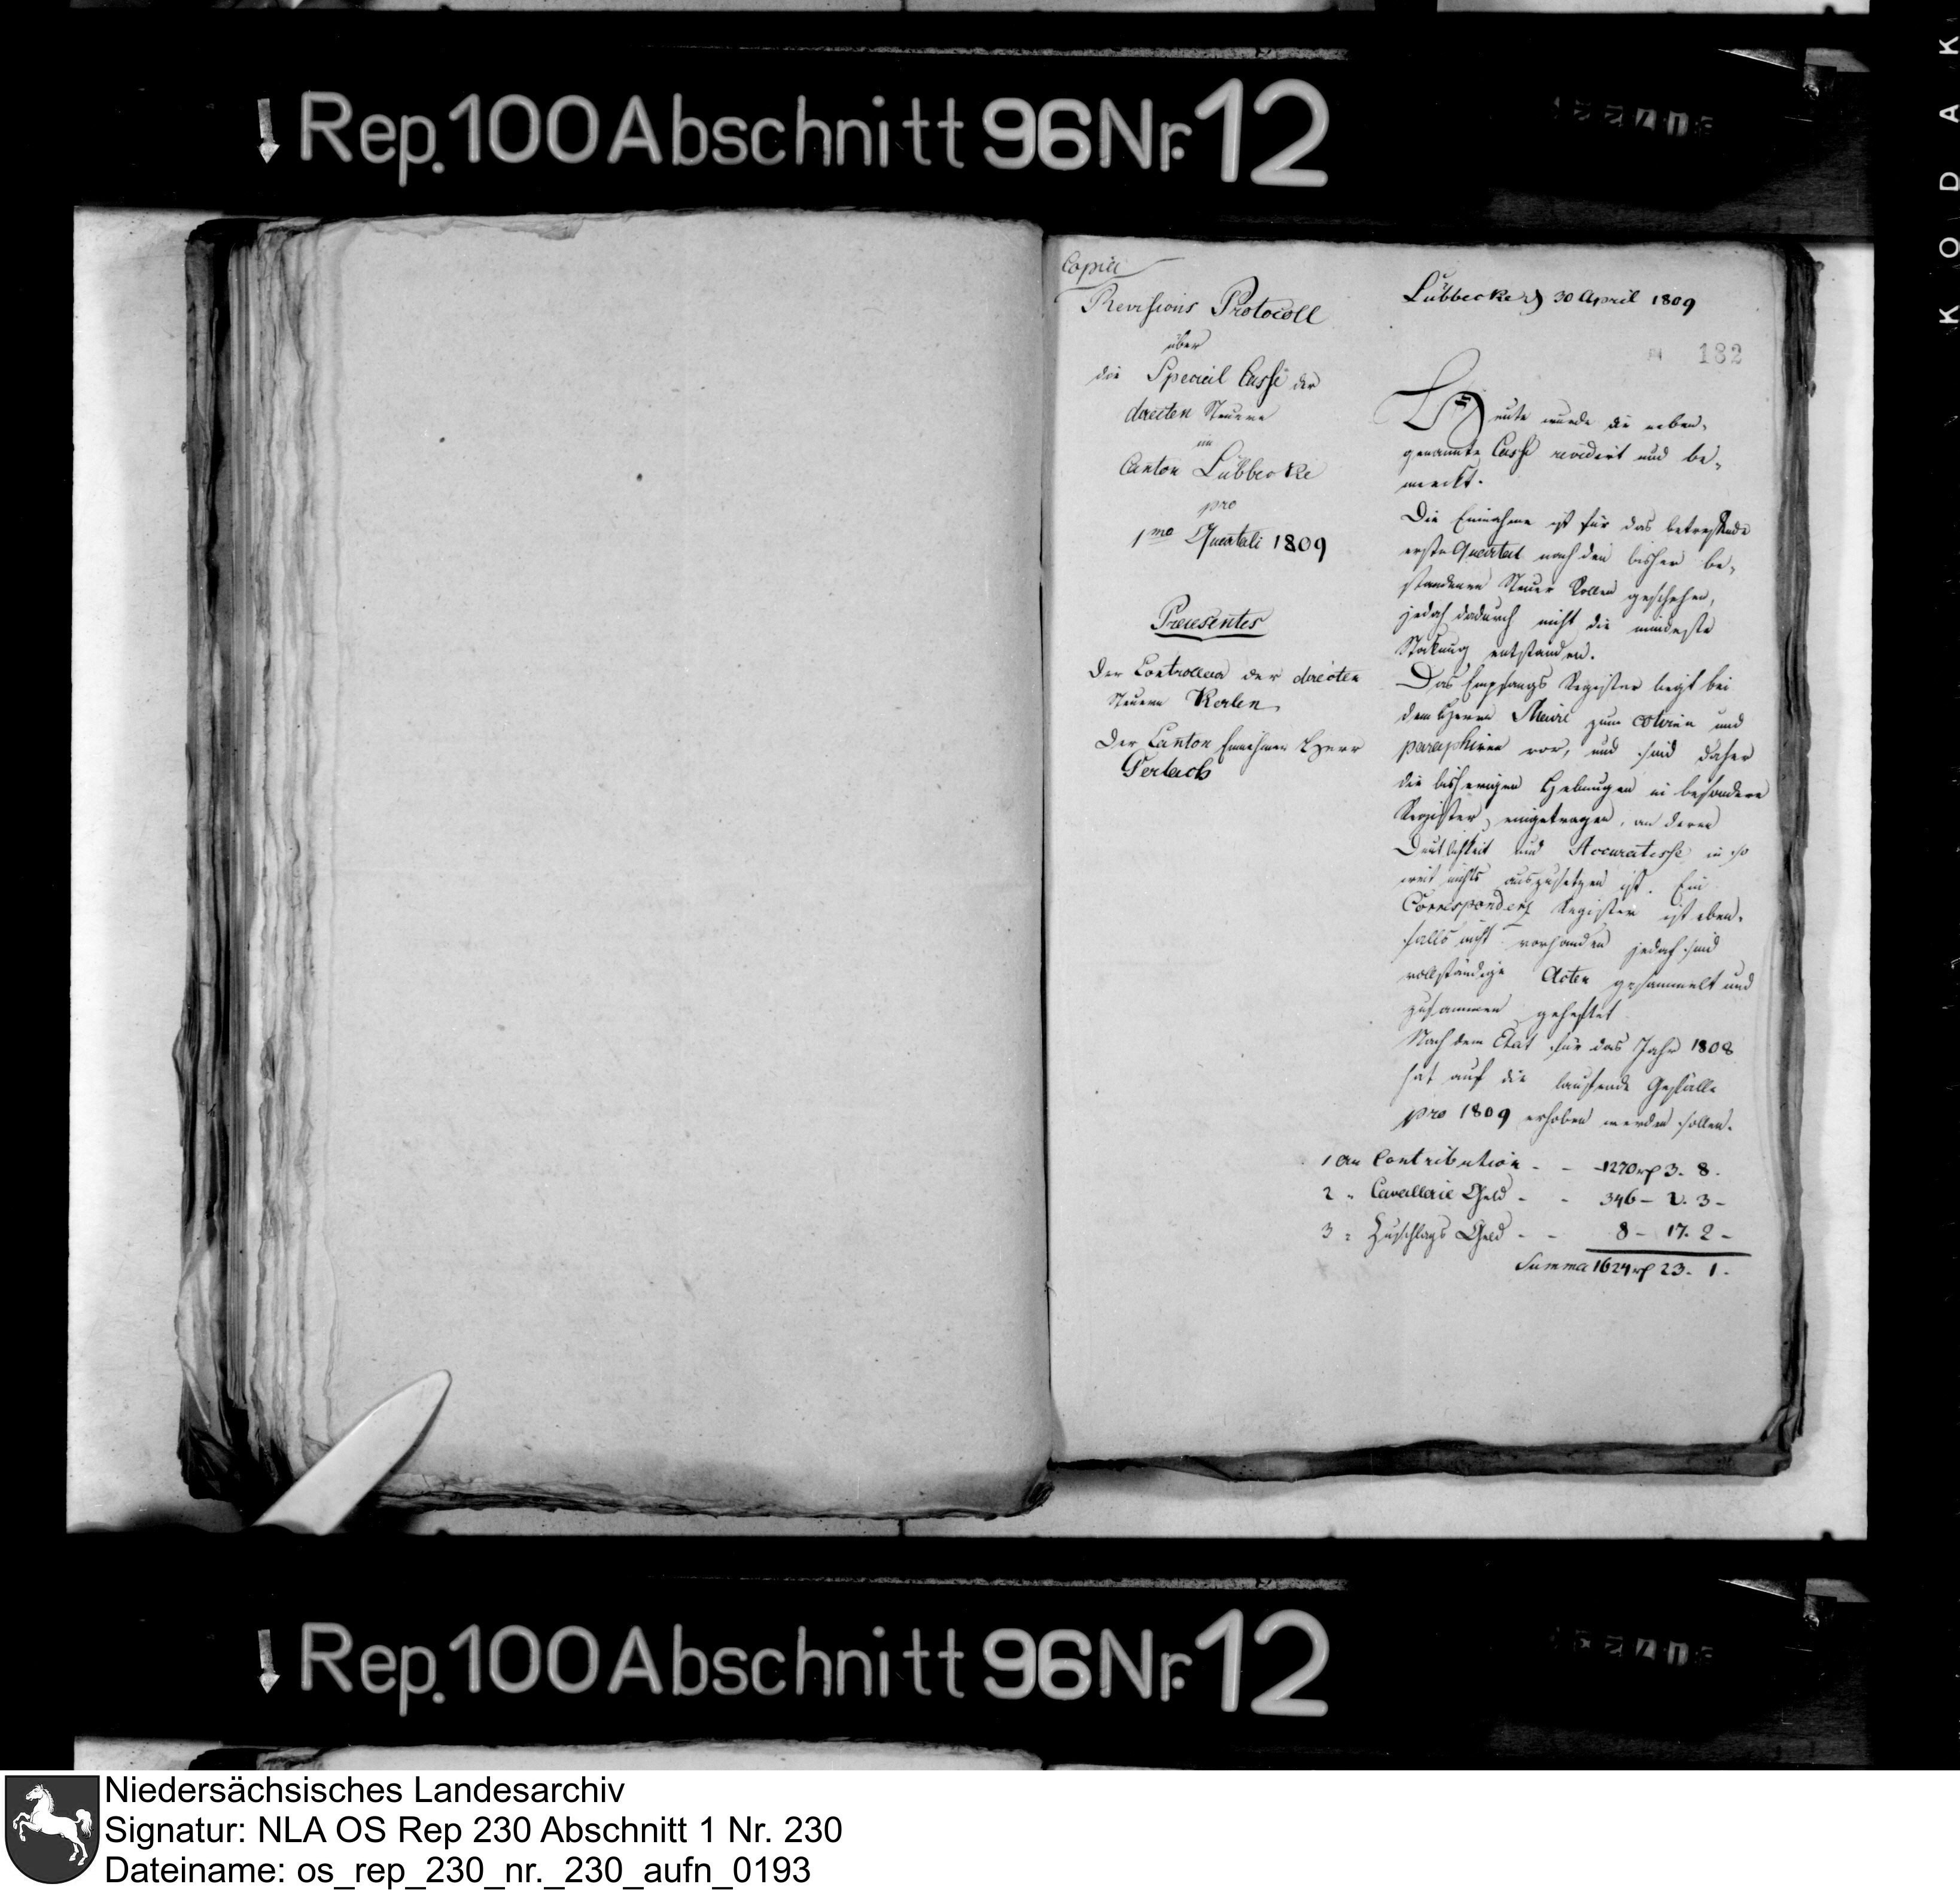 Rep. 100 Abschnitt 96 Nr. 12
KODAK
Copia
Revisions Protocoll
über
die Special Casse der
directen Steuern
im
Canton Lübbecke
pro
1mo Quartali 1809
Praesentes
Der Controlleur der directen
Steuern Kerlen
Der Canton Einnehmer Herr
Gerlach
Lübbecke d 30 April 1809
182
Heute wurde die neben-
genannte Casse revidirt und be-
merkt.
Die Einnahme ist für das betreffende
erste Quartal nach den bisher be-
standenen Steuer Rollen geschehen,
jedoch dadurch nicht die mindeste
Stokung entstanden.
Das Empfangs Register liegt bei
dem Herrn Maire zum cotiren und
paraphiren vor, und sind daher
die bisherigen Hebungen in besondere
Register eingetragen, an deren
Deutlichkeit und Accuratesse in so
weit nichts auszusetzen ist. Ein
Correspondenz Register ist eben-
falls nicht vorhanden jedoch sind
vollständige Acten gesammelt und
zusammen geheftet
Nach dem Etat für das Jahr 1808
hat auf die laufende Gefälle
pro 1809 erhoben werden sollen.
1 an Contribution - - 1270 rp 3. 8.
2 " Cavallerie Geld - - 346 - 2. 3 -
3 " Zuschlags Geld - - 8 - 17. 2 -
Summa 1624 rp 23. 1.
Rep. 100 Abschnitt 96 Nr. 12
Niedersächsisches Landesarchiv
Signatur: NLA OS Rep 230 Abschnitt 1 Nr. 230
Dateiname: os_rep_230_nr._230_aufn_0193